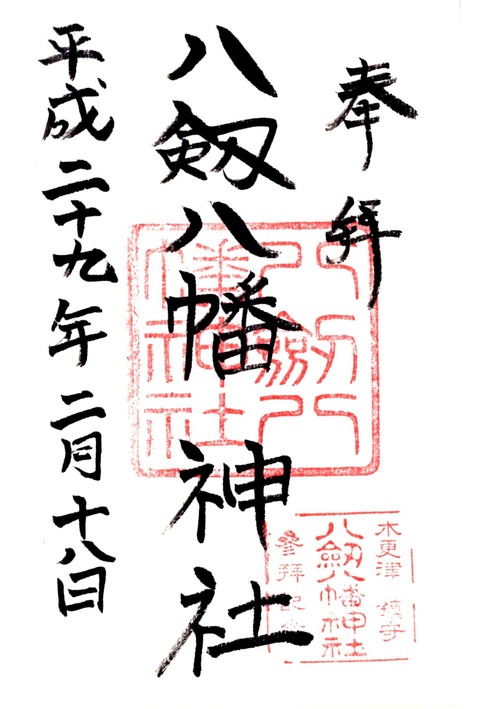 奉拝
八剱八幡神社
平成二十九年二月十八日
八剱八幡神社
木更津 鎮守
八剱八幡神社
参拝記念